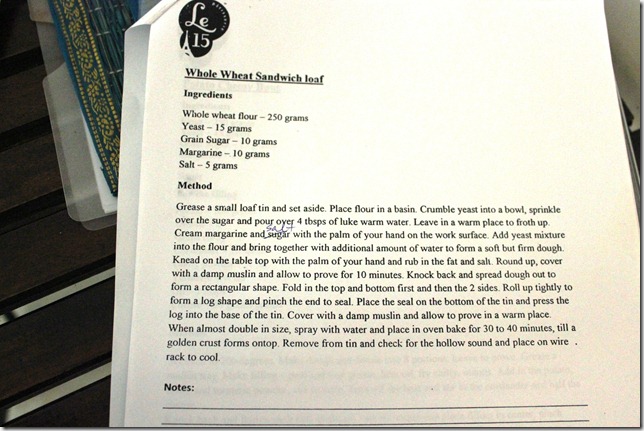 Le
15
Whole Wheat Sandwich loaf
Ingredients
Whole wheat flour – 250 grams
Yeast – 15 grams
Grain Sugar – 10 grams
Margarine – 10 grams
Salt – 5 grams
Method
Grease a small loaf tin and set aside. Place flour in a basin. Crumble yeast into a bowl, sprinkle
over the sugar and pour over 4 tbsps of luke warm water. Leave in a warm place to froth up.
salt
Cream margarine and sugar with the palm of your hand on the work surface. Add yeast mixture
into the flour and bring together with additional amount of water to form a soft but firm dough.
Knead on the table top with the palm of your hand and rub in the fat and salt. Round up, cover
with a damp muslin and allow to prove for 10 minutes. Knock back and spread dough out to
form a rectangular shape. Fold in the top and bottom first and then the 2 sides. Roll up tightly to
form a log shape and pinch the end to seal. Place the seal on the bottom of the tin and press the
log into the base of the tin. Cover with a damp muslin and allow to prove in a warm place.
When almost double in size, spray with water and place in oven bake for 30 to 40 minutes, till a
golden crust forms ontop. Remove from tin and check for the hollow sound and place on wire
rack to cool.
Notes: